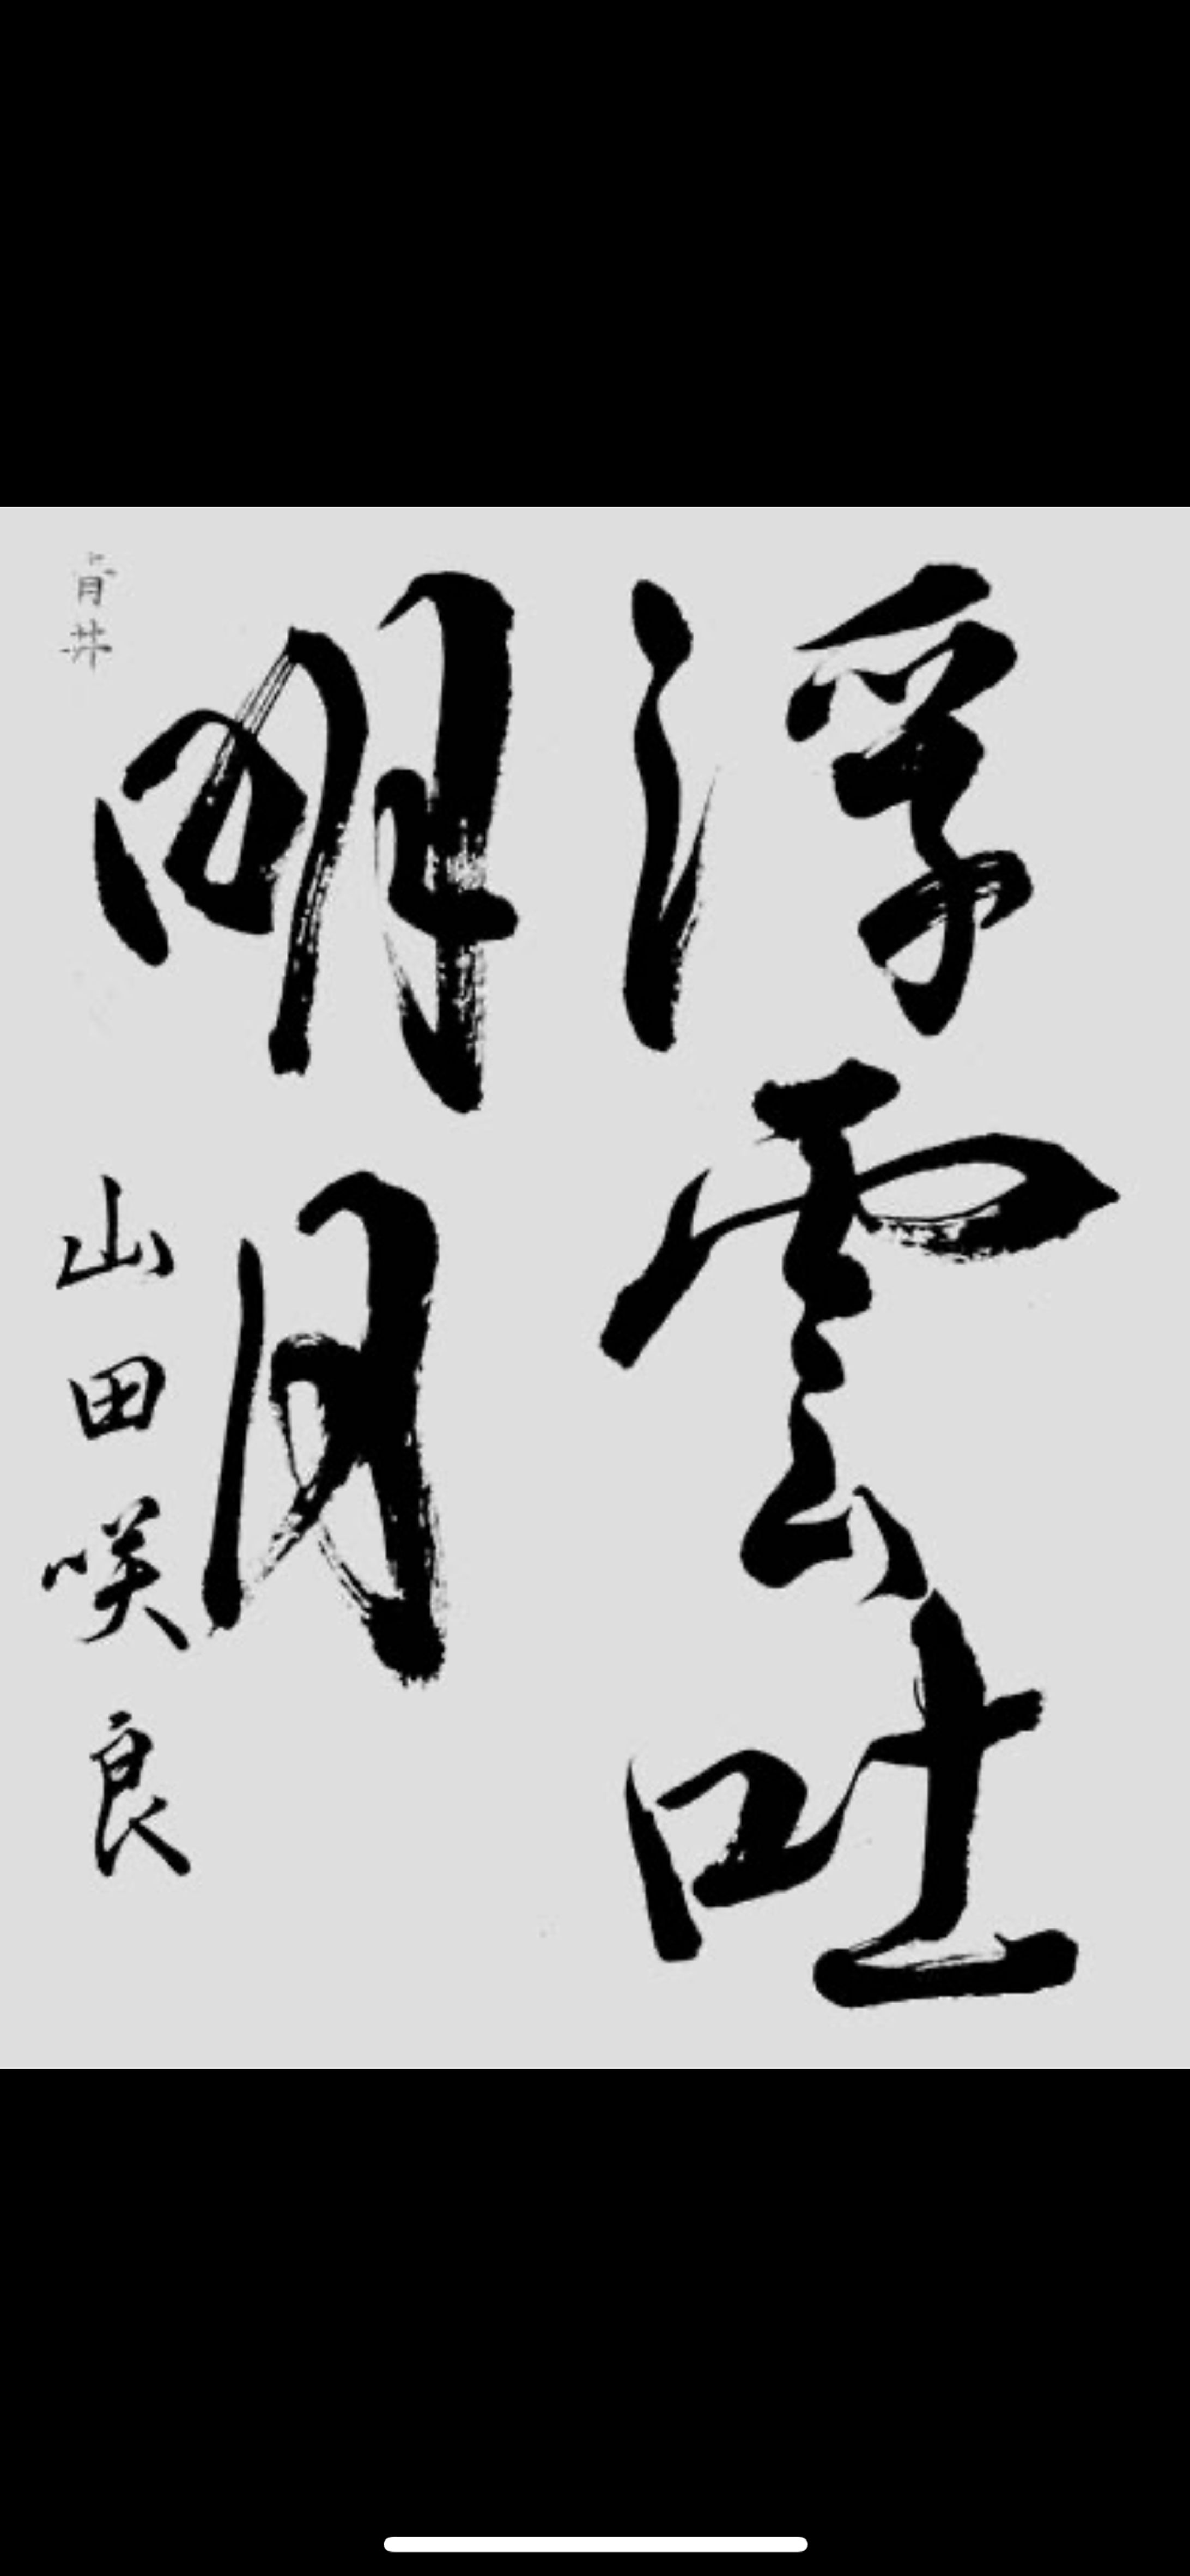 浮雲吐
明月
山田咲良